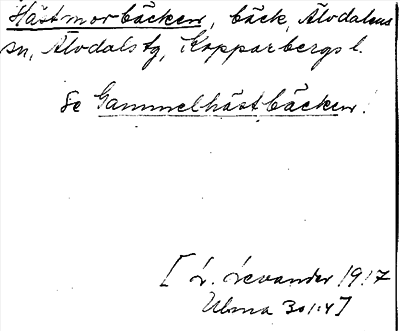 Hästmorbäcken, bäck, Älvdalens
sn, Älvdals tg, Kopparbergs l.
Se Gammelhästbäcken.
[L. Levander 1917
Ulma 301:4]